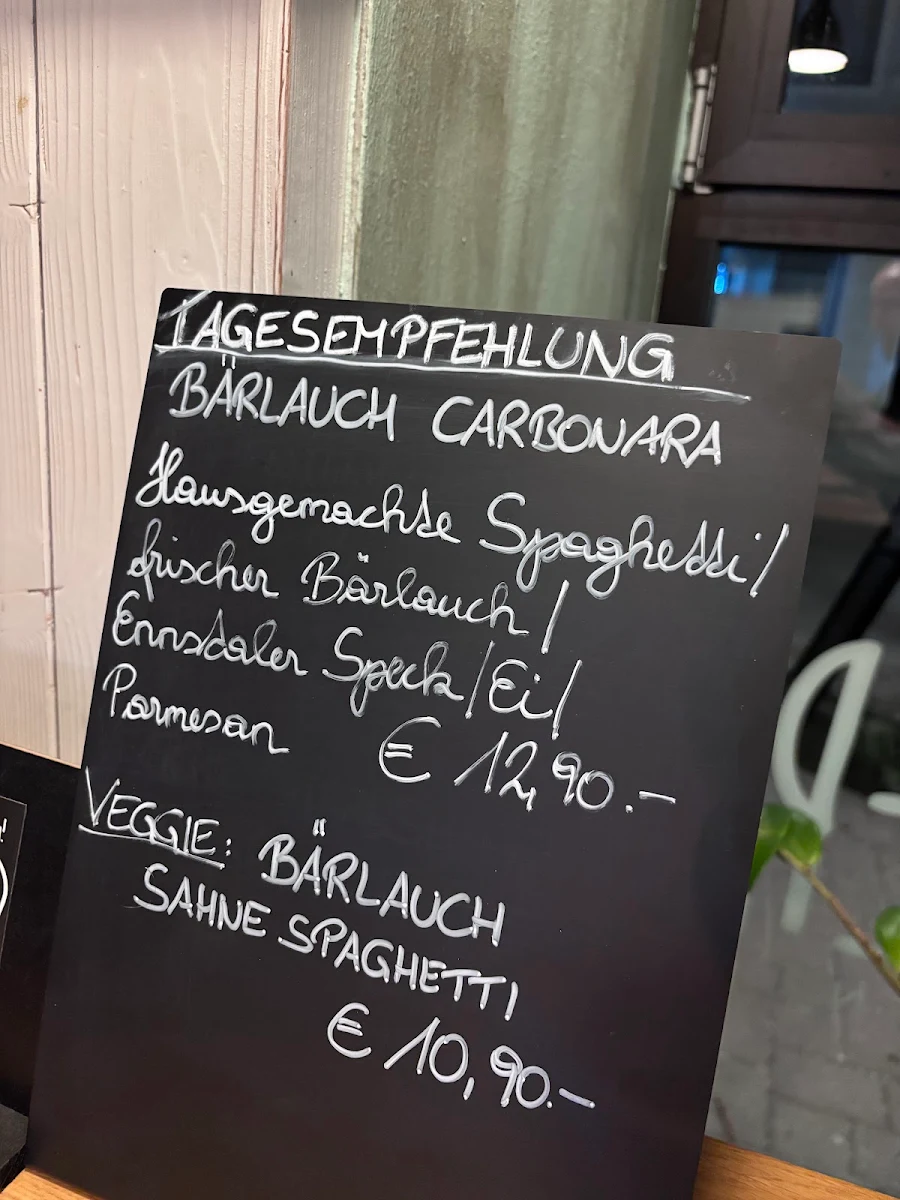 TAGESEMPFEHLUNG
BÄRLAUCH CARBONARA
Hausgemachte Spaghetti/
frischer Bärlauch/
Ennstaler Speck/Ei/
Parmesan € 12,90.-
VEGGIE: BÄRLAUCH
SAHNE SPAGHETTI
€ 10,90.-